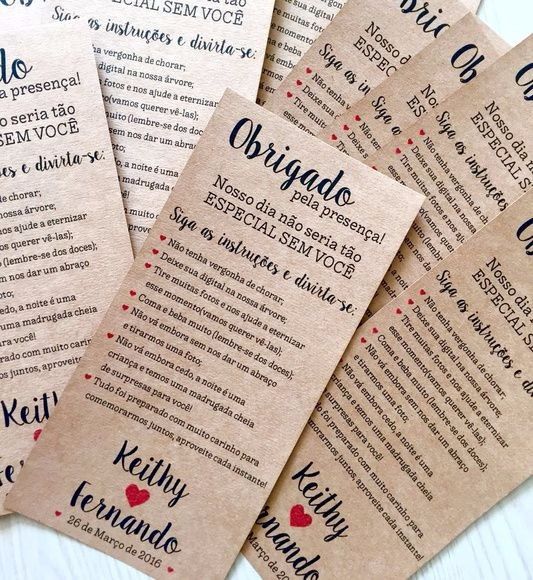 Obrigado
pela presença!
Nosso dia não seria tão
ESPECIAL SEM VOCÊ
Siga as instruções e divirta-se:
Não tenha vergonha de chorar;
Deixe sua digital na nossa árvore;
Tire muitas fotos e nos ajude a eternizar
esse momento(vamos querer vê-las);
Coma e beba muito (lembre-se dos doces);
Não vá embora sem nos dar um abraço
e tirarmos uma foto;
Não vá embora cedo, a noite é uma
criança e temos uma madrugada cheia
de surpresas para você!
Tudo foi preparado com muito carinho para
comemorarmos juntos, aproveite cada instante!
Keithy
Fernando
26 de Março de 2016